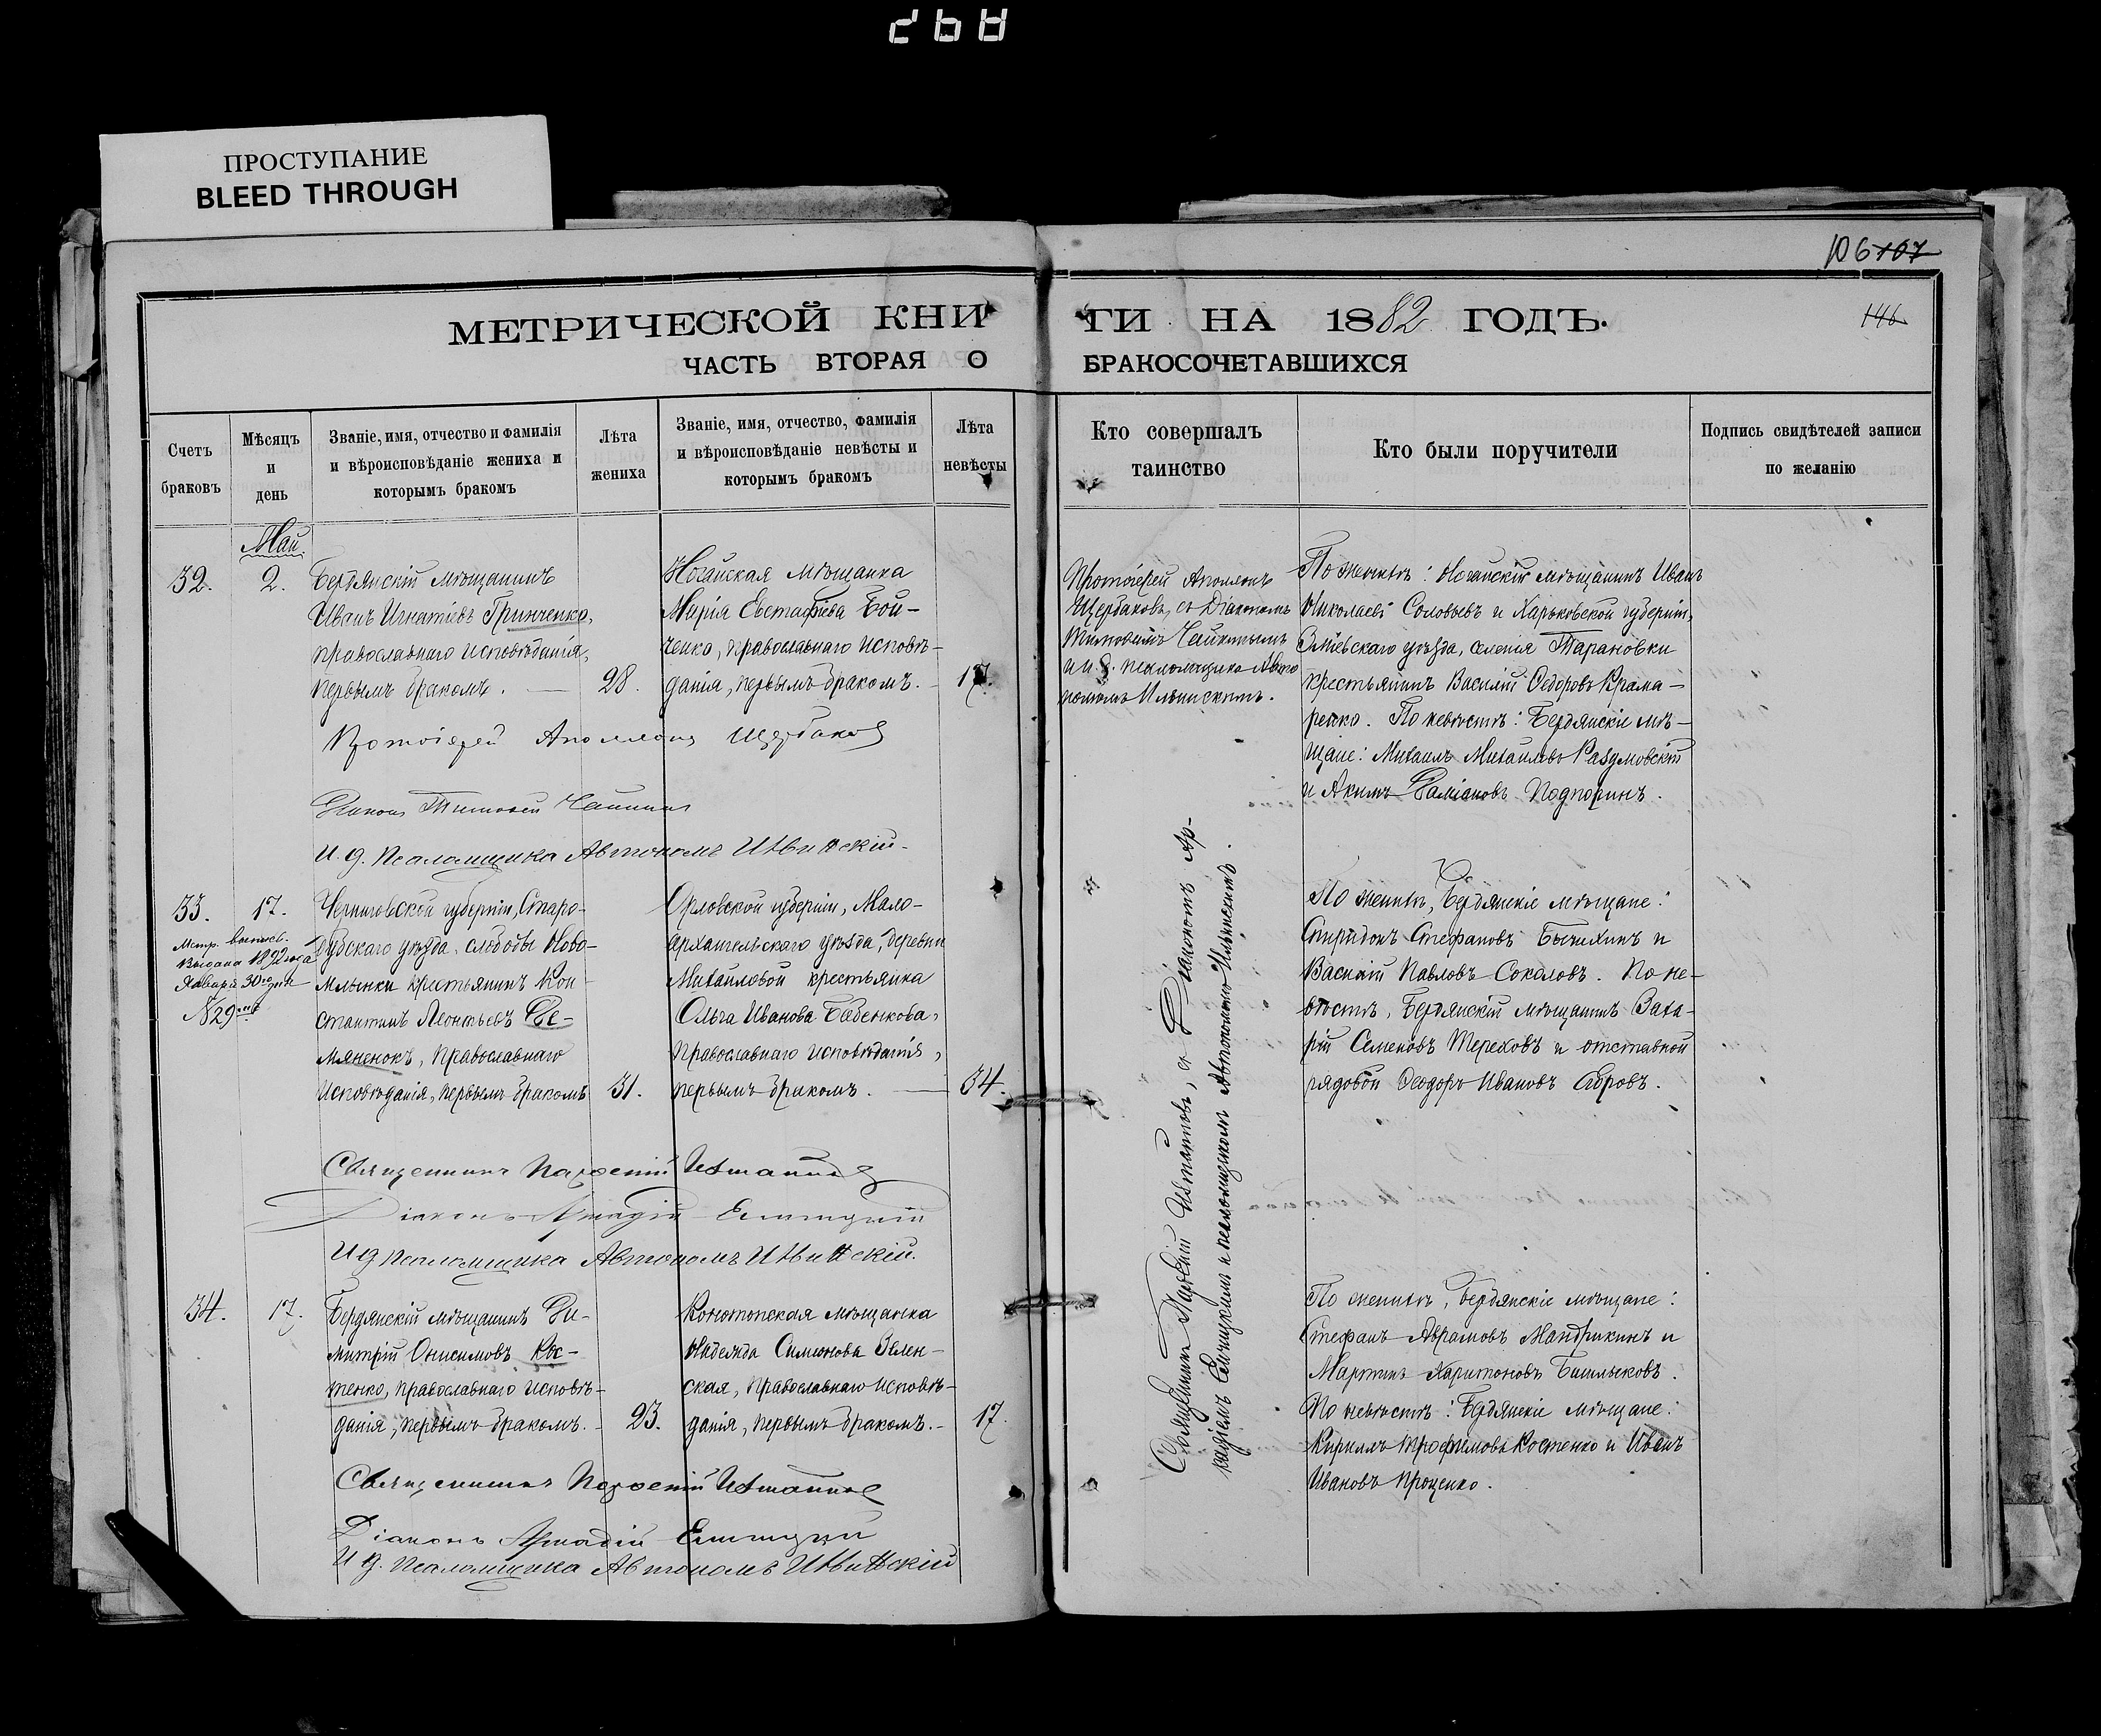 ПРОСТУПАНИЕ
BLEED THROUGH
106 107
146
МЕТРИЧЕСКОЙ КНИГИ НА 1882 ГОДЪ.
ЧАСТЬ ВТОРАЯ О БРАКОСОЧЕТАВШИХСЯ
Счетъ
браковъ
Мѣсяцъ
и
день
Званіе, имя, отчество и фамилія
и вѣроисповѣданіе жениха и
которымъ бракомъ
Лѣта
жениха
Званіе, имя, отчество, фамилія
и вѣроисповѣданіе невѣсты и
которымъ бракомъ
Лѣта
невѣсты
Кто совершалъ
таинство
Кто были поручители
Подпись свидѣтелей записи
по желанію
Май.
32.
2.
Бердянскій мѣщанинъ
Иванъ Игнатіевъ Гринченко,
православнаго исповѣданія,
первымъ бракомъ.
28.
Ногайская мѣщанка
Марія Евстафіева Бой-
ченко, православнаго исповѣ-
данія, первымъ бракомъ.
17.
Протоіерей Аполлонъ
Щербаковъ, съ Діакономъ
Тимофеемъ
и и. д. псаломщика Авто
номомъ Ильинскимъ.
По женихѣ: Ногайскій мѣщанинъ Иванъ
Николаевъ Соловьевъ и Харьковской губерніи,
Зміевскаго уѣзда, селенія Тарановки
крестьянинъ Василій Ѳедоровъ Крама-
ренко. По невѣстѣ: Бердянскіе мѣ-
щане: Михаилъ Михайловъ Разумовскій
и Акимъ Даміановъ Подпоринъ.
Протоіерей Аполлонъ Щербаковъ
Діаконъ Тимофей
И. д. Псаломщика Автономъ Ильинскій
33.
17.
Метр. выпись
Выдана 1892 года
Января 30 дня
№ 29
Черниговской губерніи, Старо-
дубскаго уѣзда, слободы Ново-
млынки крестьянинъ Кон-
стантинъ Леонтьевъ Де-
мяненокъ, православнаго
исповѣданія, первымъ бракомъ
31.
Орловской губерніи, Мало-
архангельскаго уѣзда, деревни
Михайловой крестьянка
Ольга Иванова Бабенкова,
православнаго исповѣданія,
первымъ бракомъ.
34.
Священникъ Парѳеній , съ Діакономъ Ар-
кадіемъ и псаломщикомъ Автономомъ Ильинскимъ.
По женихѣ, Бердянскіе мѣщане:
Спиридонъ Стефановъ Бычихинъ и
Василій Павловъ Соколовъ. По не-
вѣстѣ, Бердянскій мѣщанинъ Заха-
рій Семеновъ Тереховъ и отставной
рядовой Ѳеодоръ Ивановъ
Священникъ Парѳеній
Діаконъ Аркадій
И д Псаломщика Автономъ Ильинскій.
34.
17.
Бердянскій мѣщанинъ Ди-
митрій Онисимовъ Кос-
тенко, православнаго исповѣ-
данія, первымъ бракомъ.
23.
Конотопская мѣщанка
Надежда Симеонова Зелен-
ская, православнаго исповѣ-
данія, первымъ бракомъ.
17.
По женихѣ, Бердянскіе мѣщане:
Стефанъ Аврамовъ Мандрикинъ и
Мартинъ Харитоновъ
По невѣстѣ: Бердянскіе мѣщане:
Кириллъ Трофимовъ Костенко и Иванъ
Ивановъ Проценко.
Священникъ Парѳеній
Діаконъ Аркадій
И д. Псаломщика Автономъ Ильинскій